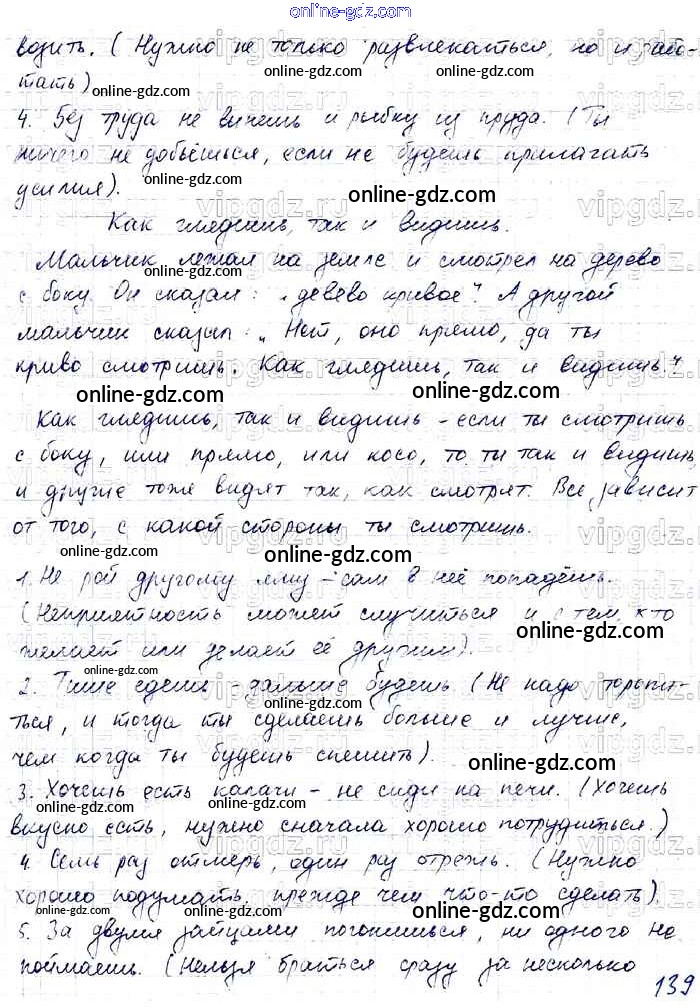 online-gdz.com
возить. (Нужно не только развлекаться, но и рабо-
тать)
4. Без труда не вынешь и рыбку из пруда. (Ты
ничего не добьёшься, если не будешь прилагать
усилия).
Как глядишь, так и видишь.
Мальчик лежал на земле и смотрел на дерево
с боку. Он сказал: „девево кривое". А другой
мальчик сказал: „Нет, оно прямо, да ты
криво смотришь. Как глядишь, так и видишь."
Как глядишь, так и видишь - если ты смотришь
с боку, или прямо, или косо, то ты так и видишь
и другие тоже видят так, как смотрят. Все зависит
от того, с какой стороны ты смотришь.
1. Не рой другому яму - сам в неё попадёшь.
(Неприятность может случиться и с тем, кто
желает или делает её другим).
2. Тише едешь - дальше будешь (Не надо торопи-
ться, и тогда ты сделаешь больше и лучше,
чем когда ты будешь спешить).
3. Хочешь есть калачи - не сиди на печи. (Хочешь
вкусно есть, нужно сначала хорошо потрудиться.)
4. Семь раз отмерь, один раз отрежь. (Нужно
хорошо подумать, прежде чем что-то сделать).
5. За двумя зайцами погонишься, ни одного не
поймаешь. (Нельзя браться сразу за несколько
139